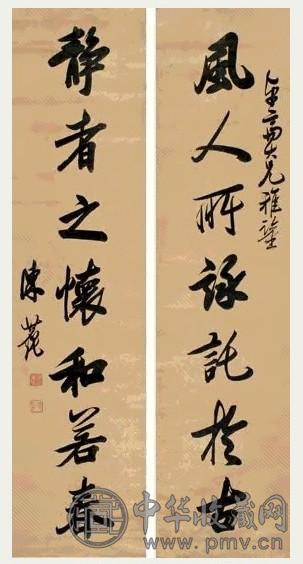 大兄雅鑒
風人所詠託於古
靜者之懷和若春
陳
中华收藏网
www.pmv.cn